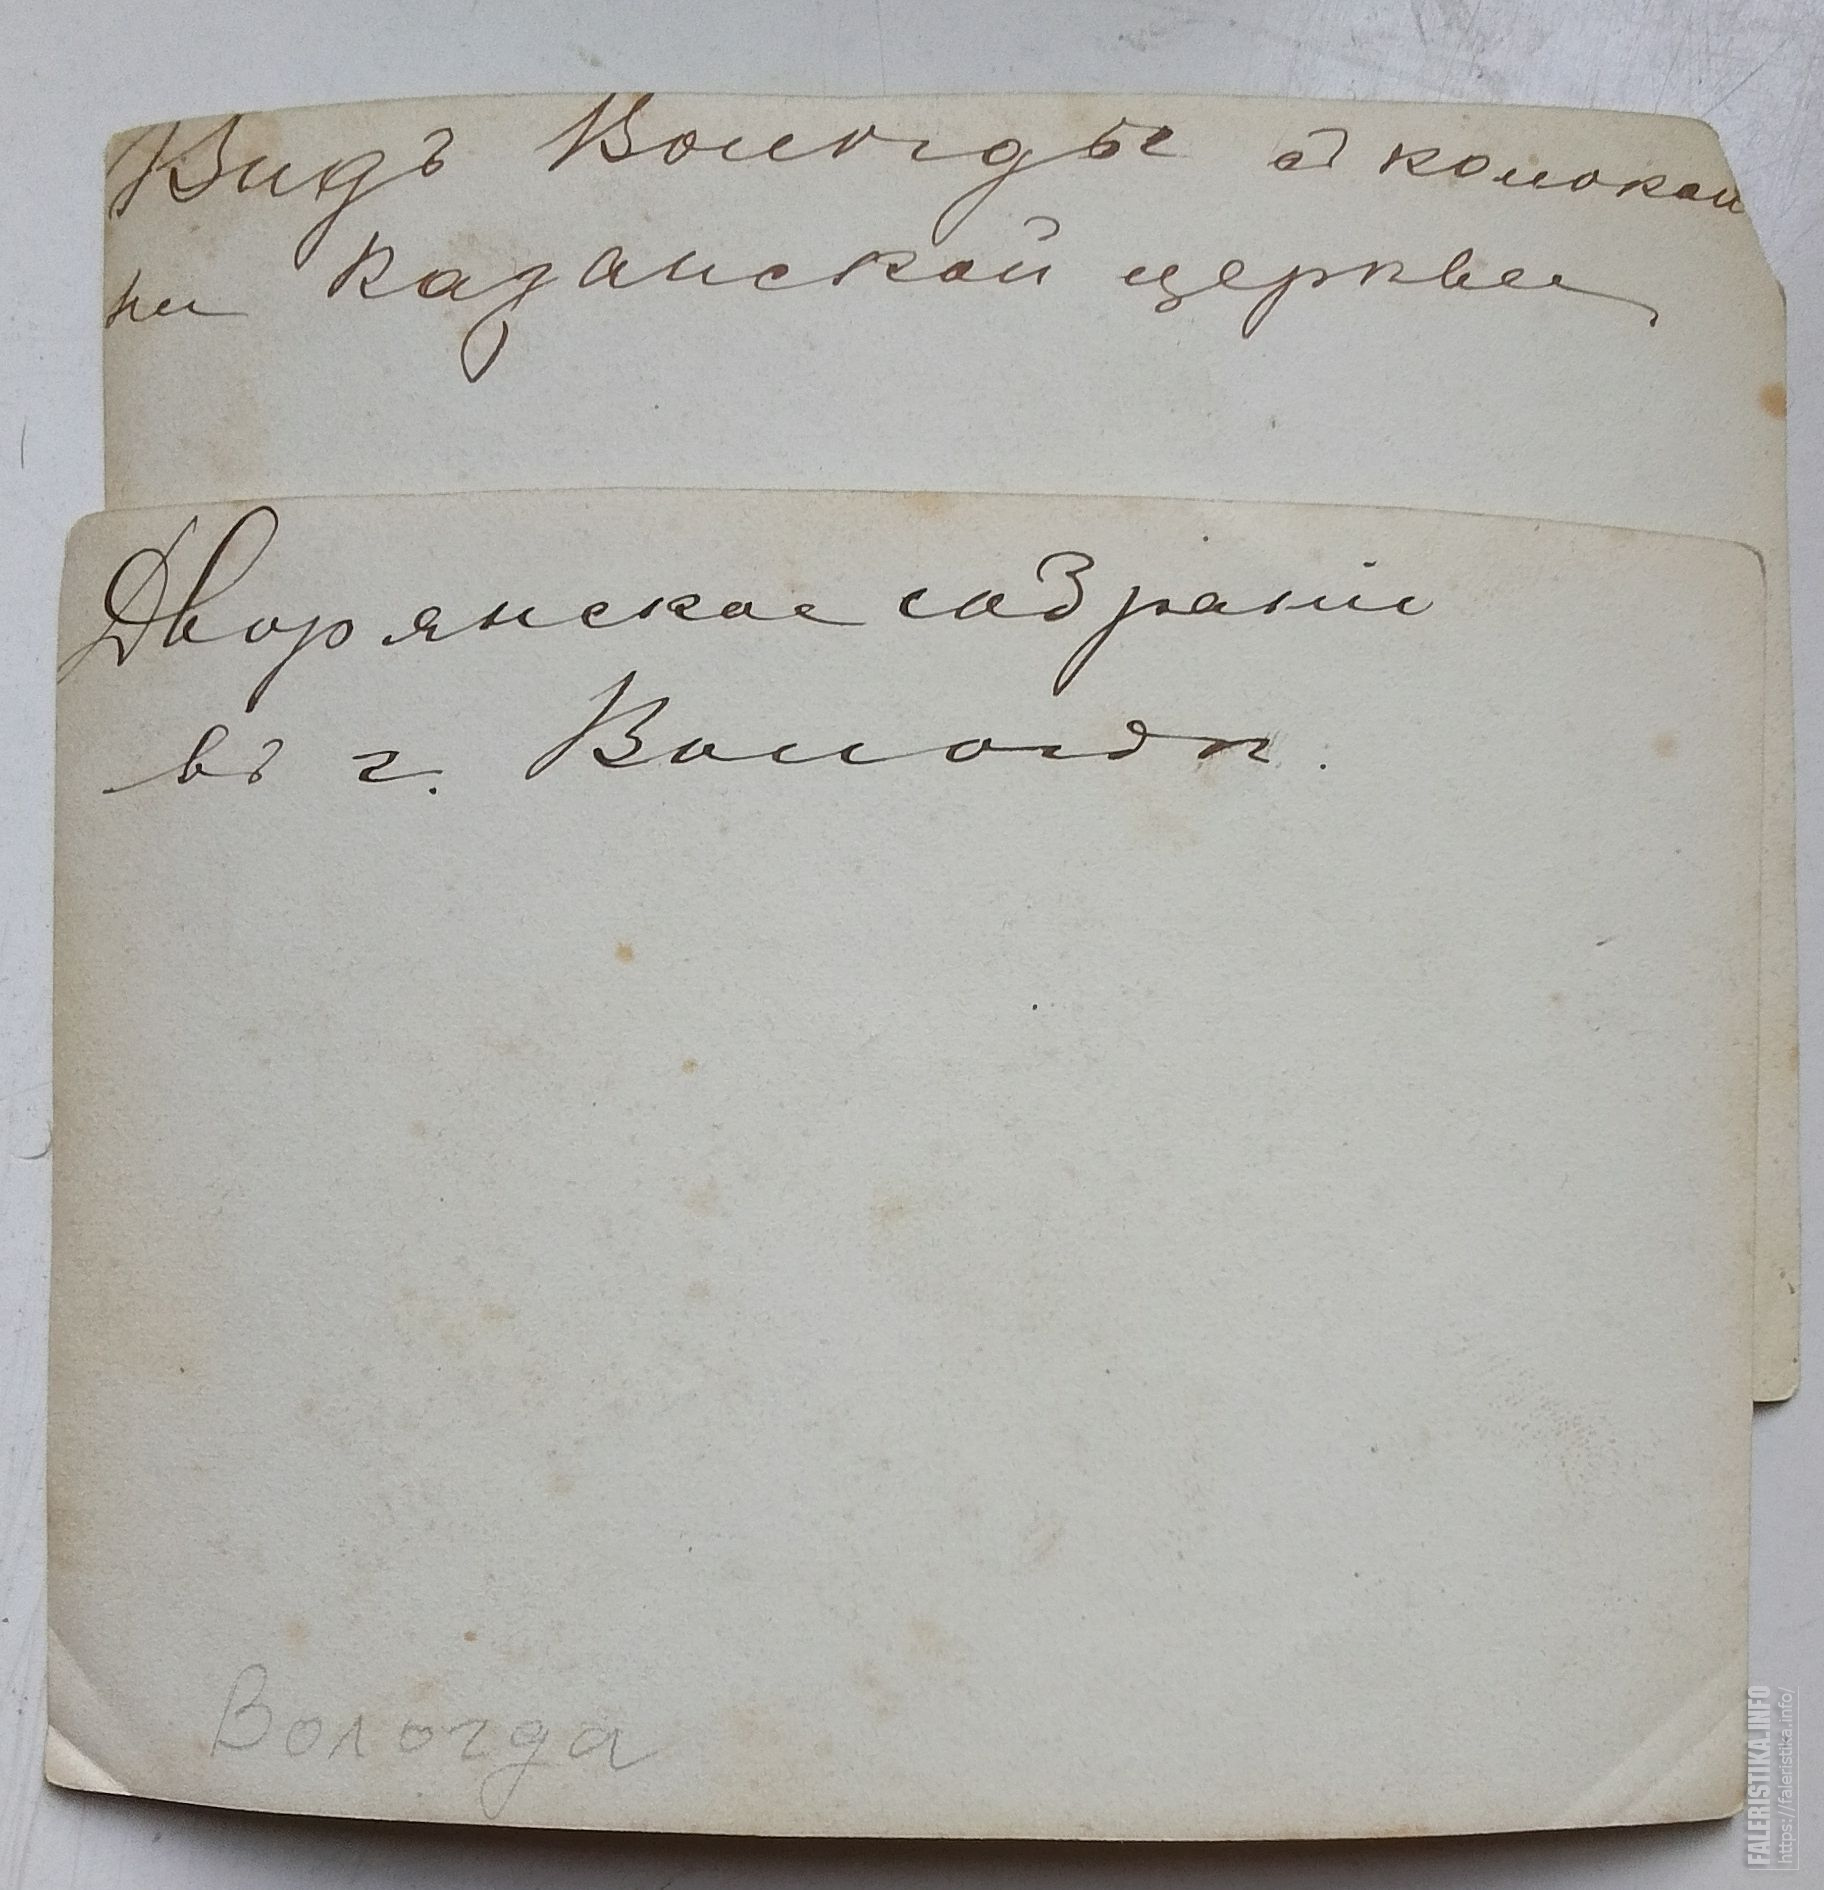 Видъ Вологды съ колоколь
ни Казанской церкви
Дворянское собраніе
въ г. Вологдѣ.
Вологда
FALERISTIKA.INFO
https://faleristika.info/